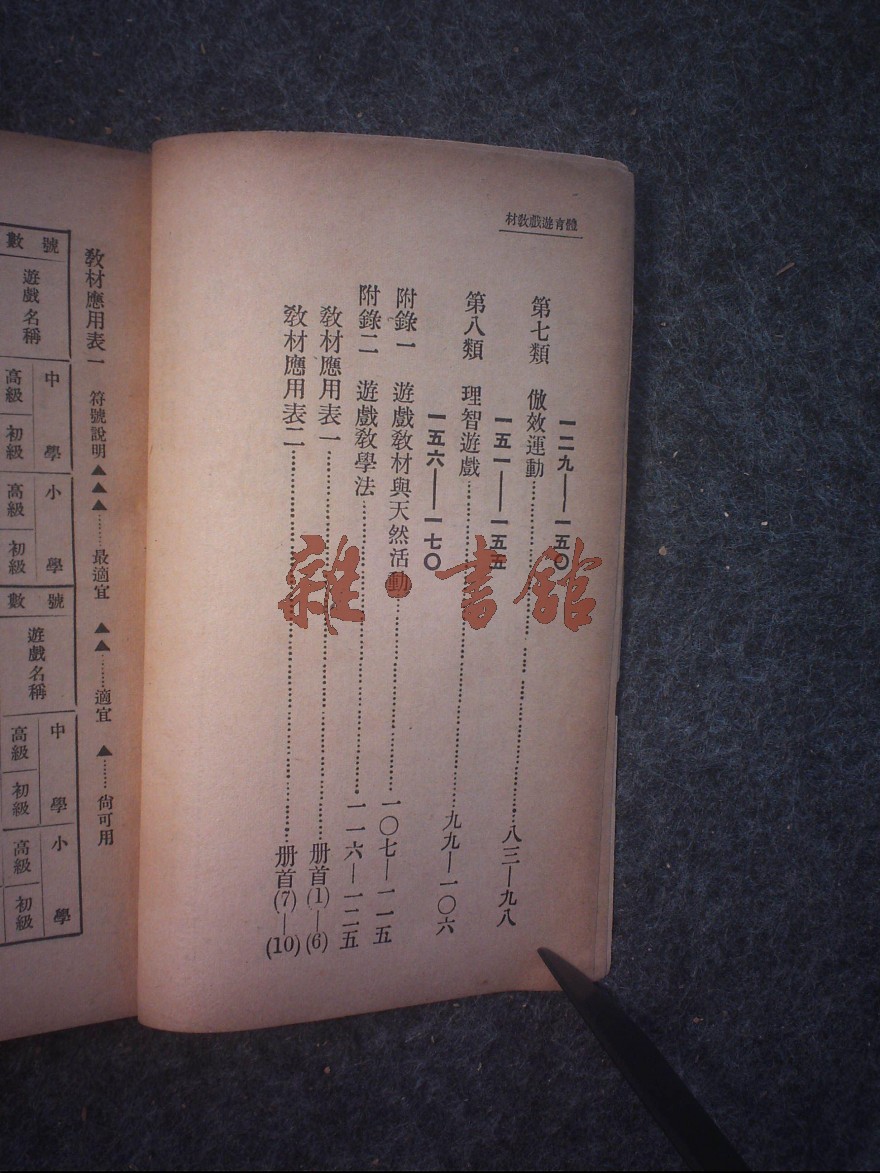 體育遊戲教材
一二九——一五〇
第七類　倣效運動……八三—九八
一五一——一五五
第八類　理智遊戲……九九—一〇六
一五六——一七〇
附錄一　遊戲教材與天然活動……一〇七—一一五
附錄二　遊戲教學法……一一六—一二五
教材應用表一……册首(1)—(6)
教材應用表二……册首(7)—(10)
教材應用表一　符號說明▲▲▲……最適宜　▲▲……適宜　▲……尚可用
號數
遊戲名稱
中學
高級
初級
小學
高級
初級
號數
遊戲名稱
中學
高級
初級
小學
高級
初級
雜·書館